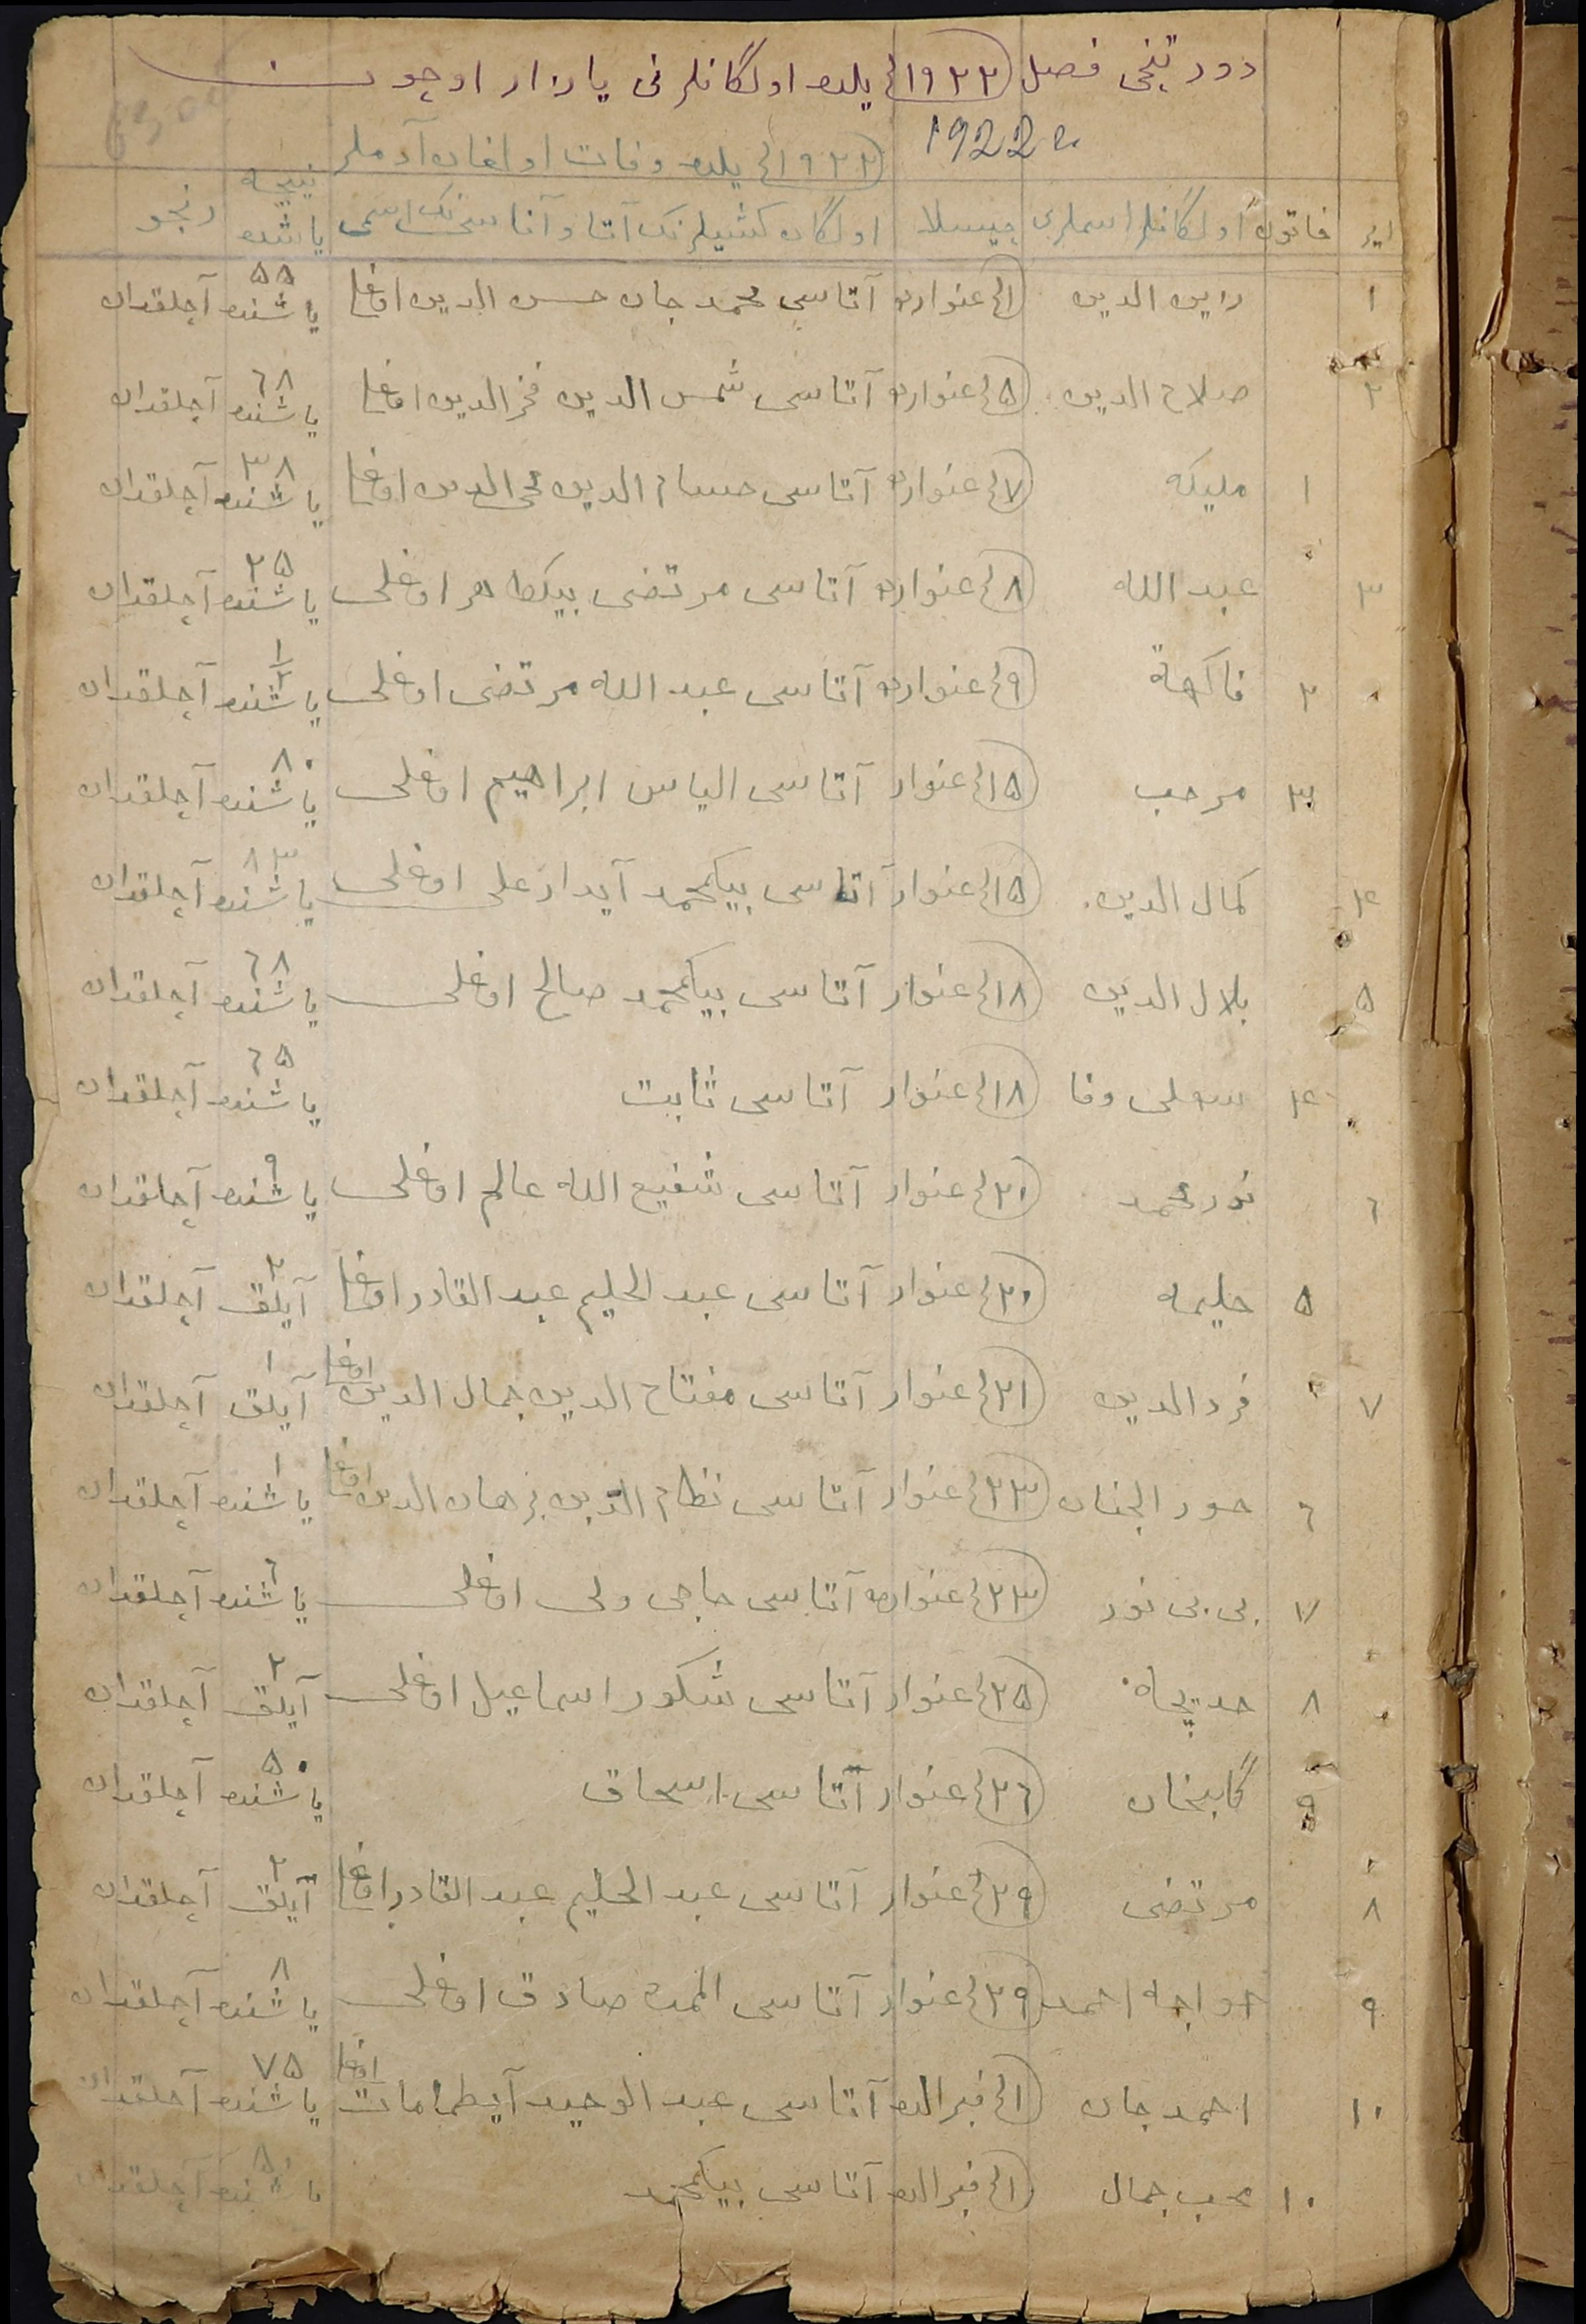 دورتنچی فصل ١٩٢٢ نچی یلده اولگانلرنی یازار اوچون
1922 г.
١٩٢٢ نچی یلده وفات اولغان آدملر
ایر خاتون اولگانلر اسملری چیسلا اولگان کشیلرنک آتا و آناسی‌نک اسمی نیچه یاشده رنجو
١ زین الدین ١ نچی غنوارده آتاسی محمد جان حسن الدین اوغلی ٥٥ یاشنده آچلقدان
٢ صلاح الدین ٥ نچی غنوارده آتاسی شمس الدین فخر الدین اوغلی ٦٨ یاشنده آچلقدان
١ ملیکه ٧ نچی غنوارده آتاسی حسام الدین محی الدین اوغلی ٣٨ یاشنده آچلقدان
٣ عبد الله ٨ نچی غنوارده آتاسی مرتضی بیکطاهر اوغلی ٢٥ یاشنده آچلقدان
٢ فاکهة ٩ نچی غنوارده آتاسی عبد الله مرتضی اوغلی ١/٢ یاشنده آچلقدان
٣ مرحب ١٥ نچی غنوار آتاسی الیاس ابراهیم اوغلی ٨٠ یاشنده آچلقدان
٤ کمال الدین ١٥ نچی غنوار آتاسی بیکمحمد آیدار علی اوغلی ٨٣ یاشنده آچلقدان
٥ بلال الدین ١٨ نچی غنوار آتاسی بیکمحمد صالح اوغلی ٦٨ یاشنده آچلقدان
٤ وفا ١٨ نچی غنوار آتاسی ثابت ٦٥ یاشنده آچلقدان
٦ نور محمد ٢٠ نچی غنوار آتاسی شفیع الله عالم اوغلی ٩ یاشنده آچلقدان
٥ حلیمه ٢٠ نچی غنوار آتاسی عبد الحلیم عبد القادر اوغلی ٢ آیلق آچلقدان
٧ فرد الدین ٢١ نچی غنوار آتاسی مفتاح الدین جمال الدین اوغلی ١ آیلق آچلقدان
٦ حور الجنان ٢٣ نچی غنوار آتاسی نظام الدین برهان الدین اوغلی ١ یاشنده آچلقدان
٧ بی بی نور ٢٣ نچی غنوارده آتاسی حاجی ولی اوغلی ٦ یاشنده آچلقدان
٨ خدیجه ٢٥ نچی غنوار آتاسی شکور اسماعیل اوغلی ٢ آیلق آچلقدان
٩ ٢٦ نچی غنوار آتاسی اسحاق ٥٠ یاشنده آچلقدان
٨ مرتضی ٢٩ نچی غنوار آتاسی عبد الحلیم عبد القادر اوغلی ٢ آیلق آچلقدان
٩ خواجه احمد ٢٩ نچی غنوار آتاسی صادق اوغلی ٨ یاشنده آچلقدان
١٠ احمد جان ١ نچی فبرالده آتاسی عبد الوحید اوغلی ٧٥ یاشنده آچلقدان
١٠ محب جمال ١ نچی فبرالده آتاسی بیکمحمد ٨٠ یاشنده آچلقدان